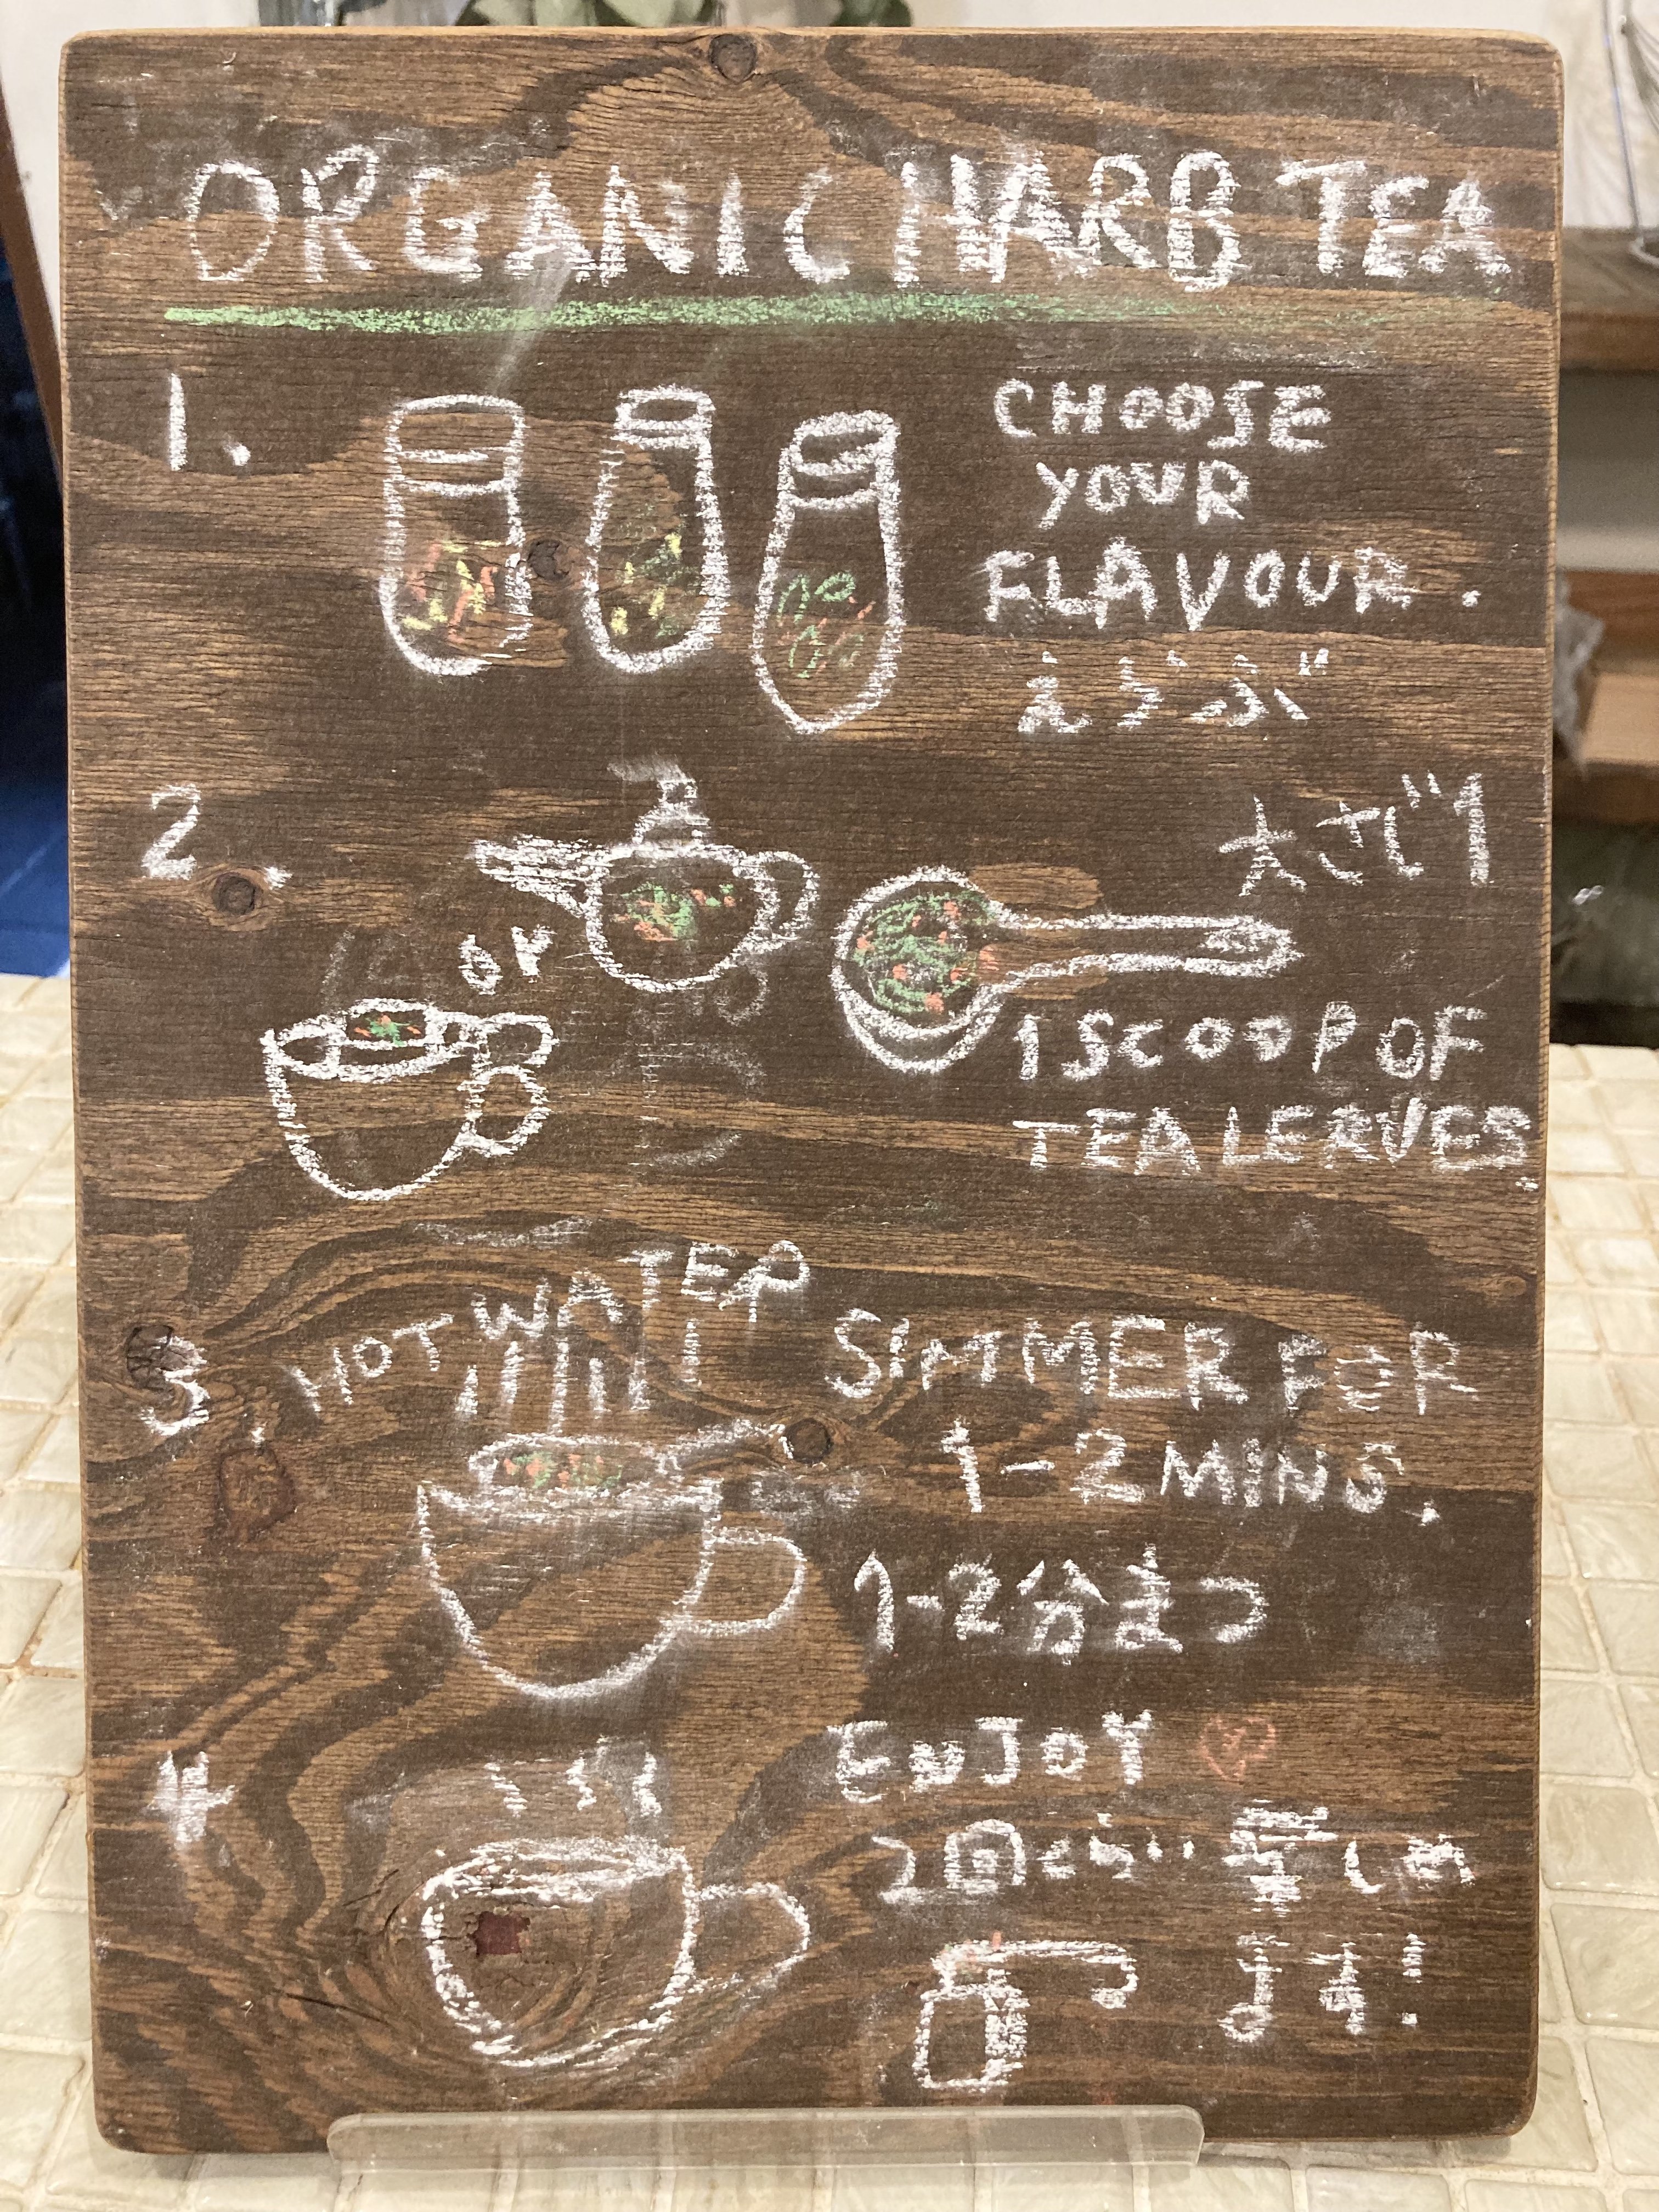 ORGANIC HARB TEA
1.
CHOOSE
YOUR
FLAVOUR.
えらぶ
2.
大さじ1
or
1 SCOOP OF
TEA LEAVES.
3.
HOT WATER
SIMMER FOR
1-2 MINS.
1-2分まつ
4
ENJOY
2回くらい 楽しめ
ます!